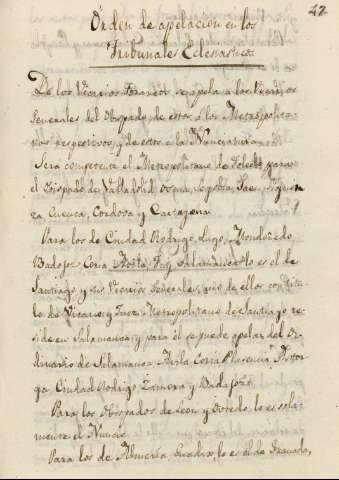 27
Órden de apelacion en los
Tribunales Eclesiasticos.
De los Vicarios Foraneos se apela a los Vicarios
Generales del Obispado, de estos a los Metropolita-
nos respectivos, y de estos a la Nunciatura.
Sera competente el Metropolitano de Toledo para
el Obispado de Valladolid Osma, Segobia, Jaen, Siguen-
za Cuenca, Cordova y Cartagena
Para los de Ciudad Rodrigo, Lugo, Mondoñedo
Badajoz Coria, Avila, Tuy, Salamanca lo es el de
Santiago y sus Vicarios Generales, uno de ellos con titu-
lo de Vicario y Juez Metropolitano de Santiago re-
side en Salamanca y para el se puede apelar del Or-
dinario de Salamanca Avila Coria Plasencia Astor-
ga Ciudad Rodrigo Zamora y Badajoz.
Para los Obispados de Leon y Oviedo lo es sola-
mente el Nuncio
Para los de Almeria Guadix lo es el de Granada,